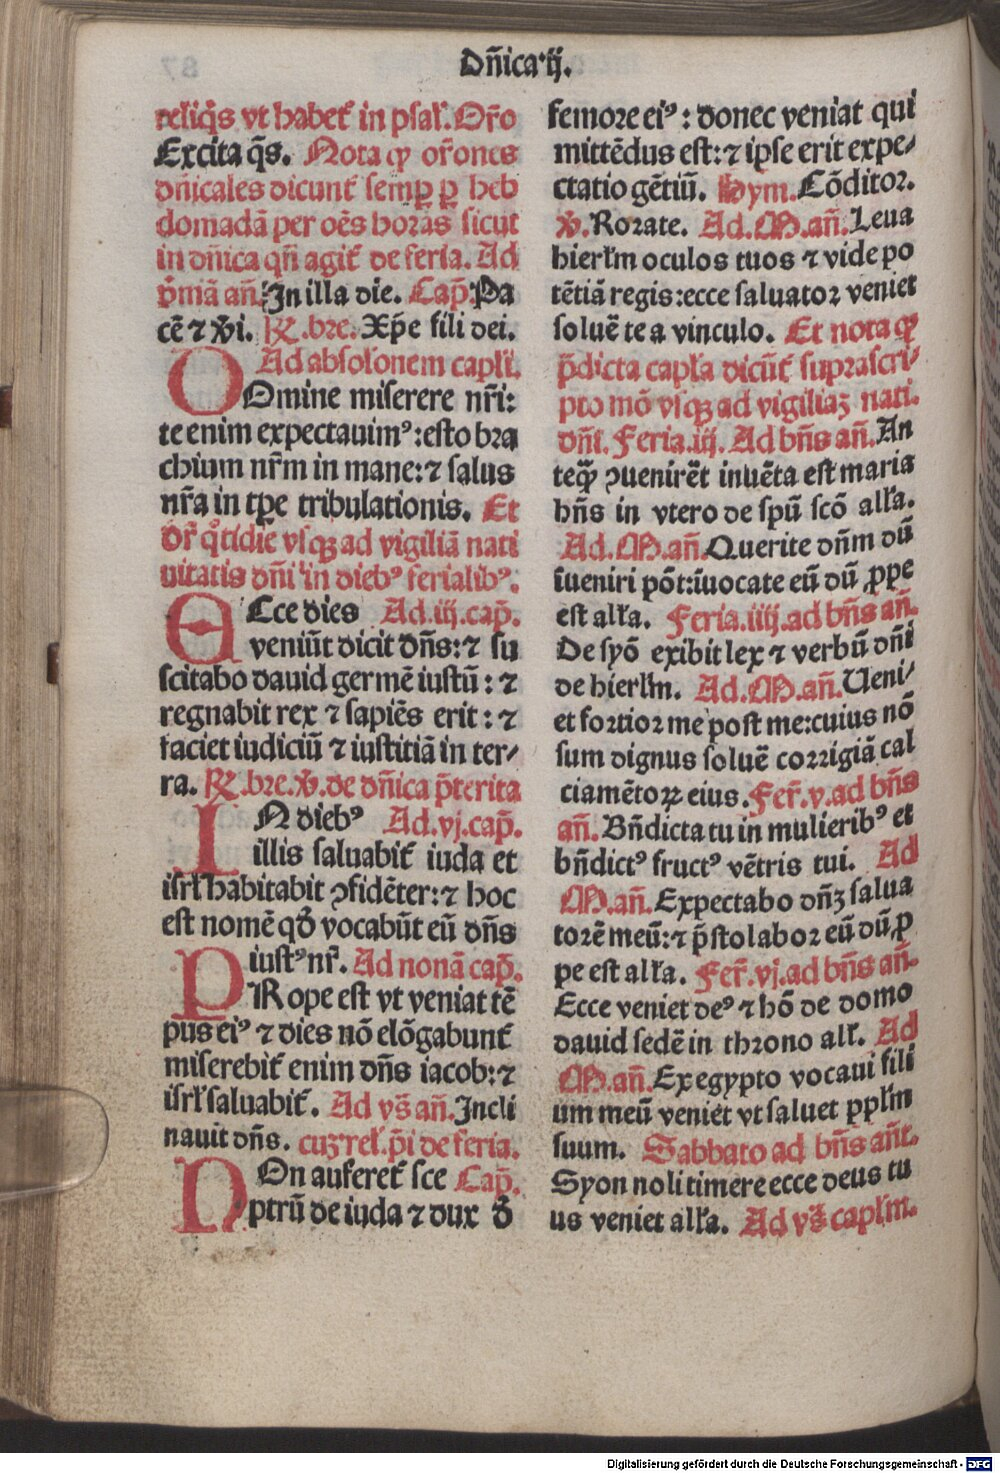 Dñica·ij.
reliq̃s vt habet᷑ in psal᷑. Or̃o
Excita q̃s. Nota ꝙ or̃ones
dñicales dicunt᷑ semꝑ ꝑ heb
domadã per oẽs horas sicut
in dñica qñ agit᷑ de feria. Ad
p̃mã añ. In illa die. Cap̃. Pa
cẽ ⁊ xp̃i. ℟.bre. Xp̃e fili dei.
Ad absolonem capl̃i.
DOmine miserere nr̃i:
te enim expectauimꝰ: esto bra
chium nr̃m in mane: ⁊ salus
nr̃a in tp̃e tribulationis. Et
dr̃ q̃tidie vsqꝫ ad vigiliã nati
uitatis dñi in diebꝰ ferialibꝰ.
ECce dies Ad.iij.cap̃.
veniũt dicit dñs: ⁊ su
scitabo dauid germẽ iustũ: ⁊
regnabit rex ⁊ sapiẽs erit: ⁊
faciet iudiciũ ⁊ iustitiã in ter⸗
ra. ℟.bre.℣. de dñica p̃terita
IN diebꝰ Ad.vj.cap̃.
illis saluabit᷑ iuda et
isrl̃ habitabit ꝯfidẽter: ⁊ hoc
est nomẽ qð vocabũt eũ dñs
iustꝰ nr̃. Ad nonã cap̃.
PRope est vt veniat tẽ
pus eiꝰ ⁊ dies nõ elõgabunt᷑
miserebit᷑ enim dñs iacob: ⁊
isrl̃ saluabit᷑. Ad vs̃ añ. Incli
nauit dñs. cuꝫ rel᷑. p̃i de feria.
NOn auferet᷑ sce Cap̃.
ptrũ de iuda ⁊ dux đ
femore eiꝰ: donec veniat qui
mittẽdus est: ⁊ ipse erit expe⸗
ctatio gẽtiũ. Hym. Cõditor.
℣. Rorate. Ad.M.añ. Leua
hierl̃m oculos tuos ⁊ vide po
tẽtiã regis: ecce saluator veniet
soluẽ te a vinculo. Et nota ꝙ
p̃dicta capl̃a dicũt᷑ suprascri⸗
pto mõ vsqꝫ ad vigiliaꝫ nati.
dñi. Feria.iij. Ad bñs añ. An
teqꝙ̃ ꝯuenirẽt inuẽta est maria
hñs in vtero de spũ scõ all̃a.
Ad.M.añ. Querite dñm dũ
iueniri põt: iuocate eũ dũ ꝓpe
est all̃a. Feria.iiij. ad bñs añ.
De syõ exibit lex ⁊ verbũ dñi
de hierl̃m. Ad.M.añ. Ueni⸗
et fortior me post me: cuius nõ
sum dignus soluẽ corrigiã cal
ciamẽtoꝝ eius. Fer̃.v. ad bñs
añ. Bñdicta tu in mulieribꝰ et
bñdictꝰ fructꝰ vẽtris tui. Ad
M.añ. Expectabo dñꝫ salua
torẽ meũ: ⁊ p̃stolabor eũ dũ ꝓ
pe est all̃a. Fer̃.vj. ad bñs añ.
Ecce veniet deꝰ ⁊ hõ de domo
dauid sedẽ in throno all̃. Ad
M.añ. Ex egypto vocaui fili
um meũ veniet vt saluet ppl̃m
suum. Sabbato ad bñs añt.
Syon noli timere ecce deus tu
us veniet all̃a. Ad vs̃ capl̃m.
Digitalisierung gefördert durch die Deutsche Forschungsgemeinschaft - DFG